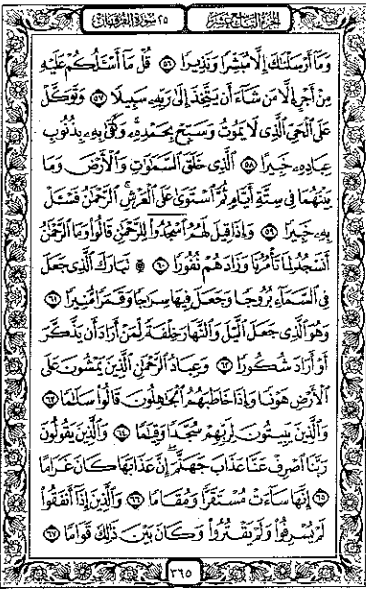 الجزء التاسع عشر ٢٥ سورة الفرقان
وَمَا أَرْسَلْنَٰكَ إِلَّا مُبَشِّرًا وَنَذِيرًا ٥٦ قُلْ مَا أَسْـَٔلُكُمْ عَلَيْهِ
مِنْ أَجْرٍ إِلَّا مَن شَآءَ أَن يَتَّخِذَ إِلَىٰ رَبِّهِۦ سَبِيلًا ٥٧ وَتَوَكَّلْ
عَلَى ٱلْحَىِّ ٱلَّذِى لَا يَمُوتُ وَسَبِّحْ بِحَمْدِهِۦ وَكَفَىٰ بِهِۦ بِذُنُوبِ
عِبَادِهِۦ خَبِيرًا ٥٨ ٱلَّذِى خَلَقَ ٱلسَّمَٰوَٰتِ وَٱلْأَرْضَ وَمَا
بَيْنَهُمَا فِى سِتَّةِ أَيَّامٍ ثُمَّ ٱسْتَوَىٰ عَلَى ٱلْعَرْشِ ٱلرَّحْمَٰنُ فَسْـَٔلْ
بِهِۦ خَبِيرًا ٥٩ وَإِذَا قِيلَ لَهُمُ ٱسْجُدُوا۟ لِلرَّحْمَٰنِ قَالُوا۟ وَمَا ٱلرَّحْمَٰنُ
أَنَسْجُدُ لِمَا تَأْمُرُنَا وَزَادَهُمْ نُفُورًا ۩ ٦٠ تَبَارَكَ ٱلَّذِى جَعَلَ
فِى ٱلسَّمَآءِ بُرُوجًا وَجَعَلَ فِيهَا سِرَٰجًا وَقَمَرًا مُّنِيرًا ٦١
وَهُوَ ٱلَّذِى جَعَلَ ٱلَّيْلَ وَٱلنَّهَارَ خِلْفَةً لِّمَنْ أَرَادَ أَن يَذَّكَّرَ
أَوْ أَرَادَ شُكُورًا ٦٢ وَعِبَادُ ٱلرَّحْمَٰنِ ٱلَّذِينَ يَمْشُونَ عَلَى
ٱلْأَرْضِ هَوْنًا وَإِذَا خَاطَبَهُمُ ٱلْجَٰهِلُونَ قَالُوا۟ سَلَٰمًا ٦٣
وَٱلَّذِينَ يَبِيتُونَ لِرَبِّهِمْ سُجَّدًا وَقِيَٰمًا ٦٤ وَٱلَّذِينَ يَقُولُونَ
رَبَّنَا ٱصْرِفْ عَنَّا عَذَابَ جَهَنَّمَ إِنَّ عَذَابَهَا كَانَ غَرَامًا
٦٥ إِنَّهَا سَآءَتْ مُسْتَقَرًّا وَمُقَامًا ٦٦ وَٱلَّذِينَ إِذَآ أَنفَقُوا۟
لَمْ يُسْرِفُوا۟ وَلَمْ يَقْتُرُوا۟ وَكَانَ بَيْنَ ذَٰلِكَ قَوَامًا ٦٧
٣٦٥